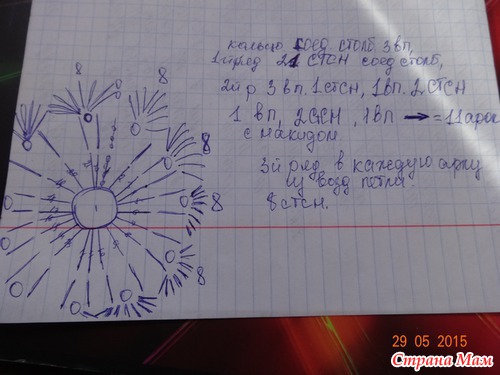 кольцо соед. столб. 3 вп,
1й ряд 21 СТСН соед столб,
2й р 3 вп. 1 стсн, 1 вп. 2 СТСН
1 вп, 2 ССН, 1 вп → = 11 арок
с накидом.
3й ряд в каждую арку
из возд петли
8 стсн.
8
8
8
8
8
29 05 2015
Страна Мам